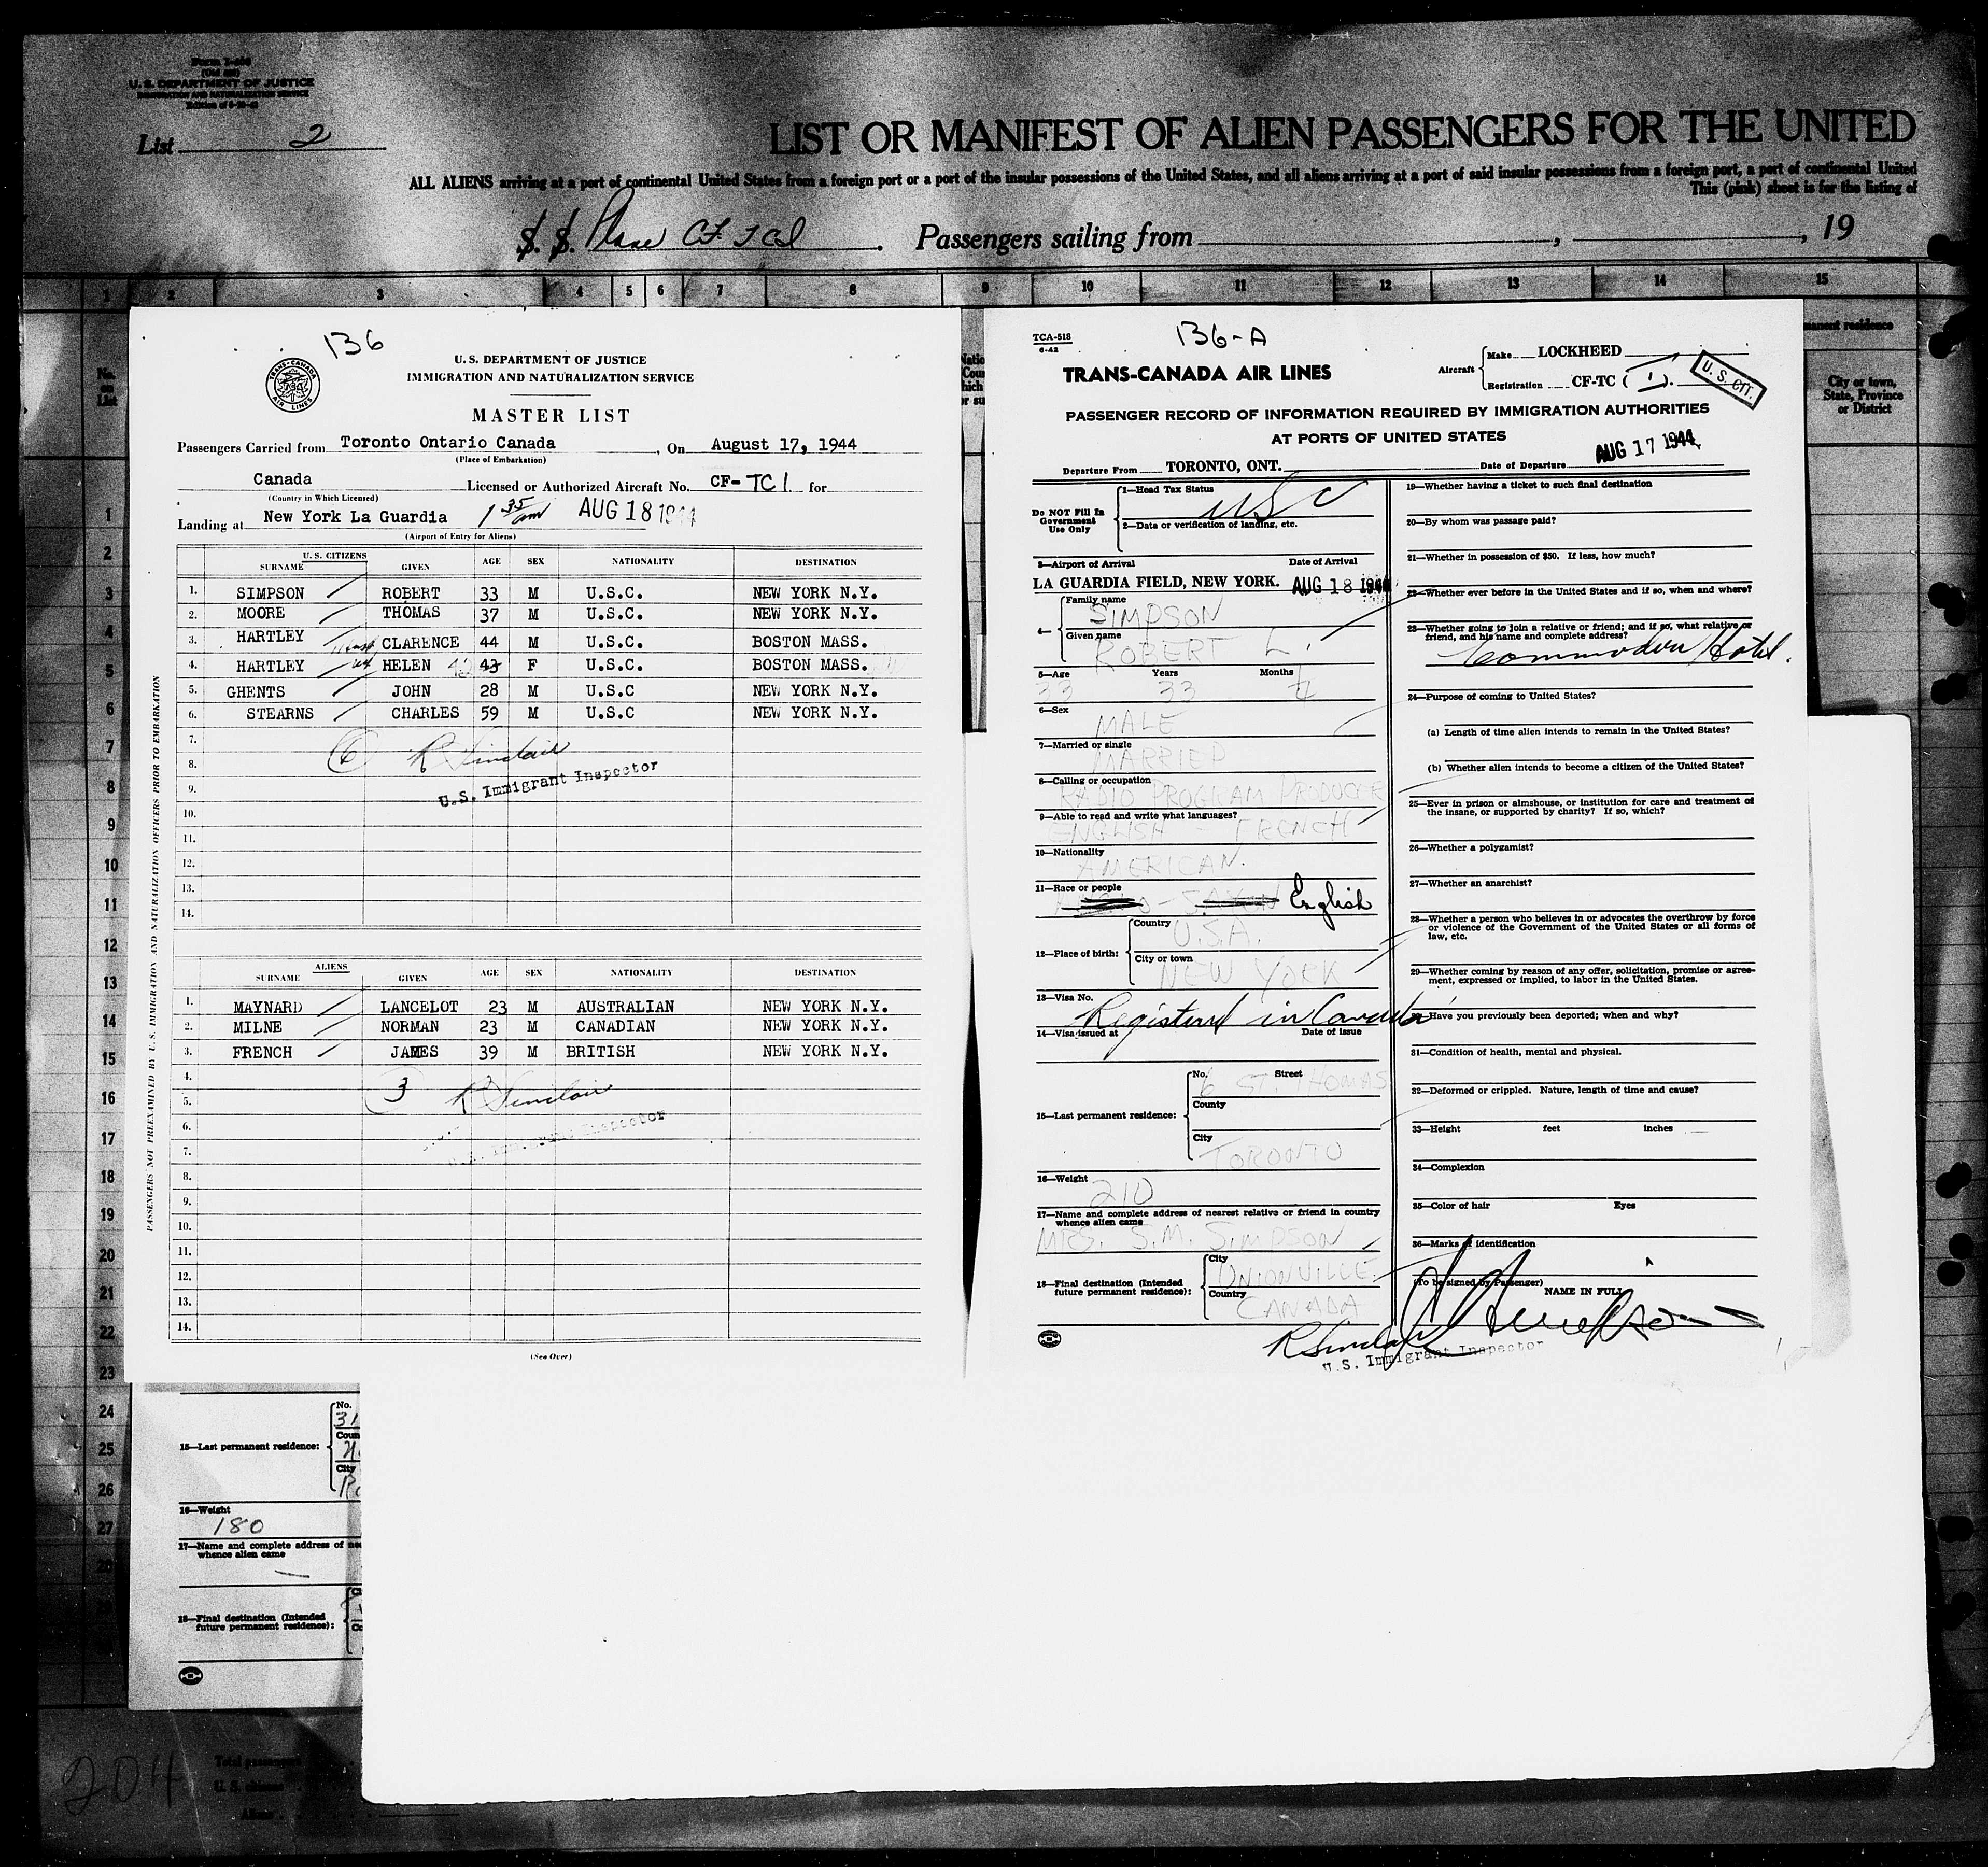 U. S. DEPARTMENT OF JUSTICE
List 2
LIST OR MANIFEST OF ALIEN PASSENGERS FOR THE UNITED
ALL ALIENS arriving at a port of continental United States from a foreign port or a port of the insular possessions of the United States, and all aliens arriving at a port of said insular possessions from a foreign port, a port of continental United
This (pink) sheet is for the listing of
S. S. Plane CF. TCI . Passengers sailing from , , 19
1 2 3 4 5 6 7 8 9 10 11 12 13 14 15
manent residence
No. on List
City or town, State, Province or District
136
TRANS-CANADA AIR LINES
U. S. DEPARTMENT OF JUSTICE
IMMIGRATION AND NATURALIZATION SERVICE
MASTER LIST
Passengers Carried from Toronto Ontario Canada , On August 17, 1944
(Place of Embarkation)
Canada Licensed or Authorized Aircraft No. CF-TC1 for
(Country in Which Licensed)
Landing at New York La Guardia 1 35 am AUG 18 1944
(Airport of Entry for Aliens)
U. S. CITIZENS
SURNAME GIVEN AGE SEX NATIONALITY DESTINATION
1. SIMPSON ROBERT 33 M U.S.C. NEW YORK N.Y.
2. MOORE THOMAS 37 M U.S.C. NEW YORK N.Y.
3. HARTLEY CLARENCE 44 M U.S.C. BOSTON MASS.
4. HARTLEY HELEN 43 F U.S.C. BOSTON MASS.
5. GHENTS JOHN 28 M U.S.C NEW YORK N.Y.
6. STEARNS CHARLES 59 M U.S.C NEW YORK N.Y.
7.
8. 6 R Sinclair
9. U.S. Immigrant Inspector
10.
11.
12.
13.
14.
ALIENS
SURNAME GIVEN AGE SEX NATIONALITY DESTINATION
1. MAYNARD LANCELOT 23 M AUSTRALIAN NEW YORK N.Y.
2. MILNE NORMAN 23 M CANADIAN NEW YORK N.Y.
3. FRENCH JAMES 39 M BRITISH NEW YORK N.Y.
4.
5. 3 R Sinclair
6. Inspector
7.
8.
9.
10.
11.
12.
13.
14.
(See Over)
PASSENGERS NOT PREEXAMINED BY U.S. IMMIGRATION AND NATURALIZATION OFFICERS PRIOR TO EMBARKATION
1
2
3
4
5
6
7
8
9
10
11
12
13
14
15
16
17
18
19
20
21
22
23
24
25
26
27
TCA-518
6-42
136-A
TRANS-CANADA AIR LINES
Aircraft Make LOCKHEED
Registration CF-TC ( 1 ).
U. S. CIT.
PASSENGER RECORD OF INFORMATION REQUIRED BY IMMIGRATION AUTHORITIES
AT PORTS OF UNITED STATES
Departure From TORONTO, ONT. Date of Departure AUG 17 1944
Do NOT Fill In Government Use Only
1—Head Tax Status USC
2—Data or verification of landing, etc.
3—Airport of Arrival Date of Arrival
LA GUARDIA FIELD, NEW YORK. AUG 18 1944
4— Family name SIMPSON
Given name ROBERT L.
5—Age Years Months
33 33 4
6—Sex
MALE
7—Married or single
MARRIED
8—Calling or occupation
RADIO PROGRAM PRODUCER
9—Able to read and write what languages?
ENGLISH - FRENCH
10—Nationality
AMERICAN.
11—Race or people
English
12—Place of birth: Country U.S.A.
City or town NEW YORK
13—Visa No.
Registered in Canada
14—Visa issued at Date of issue
15—Last permanent residence: No. Street
6 ST. THOMAS
County
City
TORONTO
16—Weight
210
17—Name and complete address of nearest relative or friend in country
whence alien came
MRS. S.M. SIMPSON
18—Final destination (Intended future permanent residence): City UNIONVILLE
Country CANADA
19—Whether having a ticket to such final destination
20—By whom was passage paid?
21—Whether in possession of $50. If less, how much?
22—Whether ever before in the United States and if so, when and where?
23—Whether going to join a relative or friend; and if so, what relative or
friend, and his name and complete address?
Commodore Hotel.
24—Purpose of coming to United States?
(a) Length of time alien intends to remain in the United States?
(b) Whether alien intends to become a citizen of the United States?
25—Ever in prison or almshouse, or institution for care and treatment of
the insane, or supported by charity? If so, which?
26—Whether a polygamist?
27—Whether an anarchist?
28—Whether a person who believes in or advocates the overthrow by force
or violence of the Government of the United States or all forms of
law, etc.
29—Whether coming by reason of any offer, solicitation, promise or agree-
ment, expressed or implied, to labor in the United States.
30—Have you previously been deported; when and why?
31—Condition of health, mental and physical.
32—Deformed or crippled. Nature, length of time and cause?
33—Height feet inches
34—Complexion
35—Color of hair Eyes
36—Marks of identification
(To be signed by Passenger)
NAME IN FULL
R Sinclair
U.S. Immigrant Inspector
15—Last permanent residence: No.
31
City
16—Weight
180
17—Name and complete address of
whence alien came
18—Final destination (Intended
future permanent residence):
204
Total passengers
U. S. citizens
Aliens